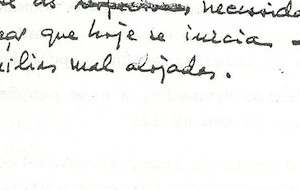 se as necessida
ças que hoje se inicia -
ílias mal alojadas.